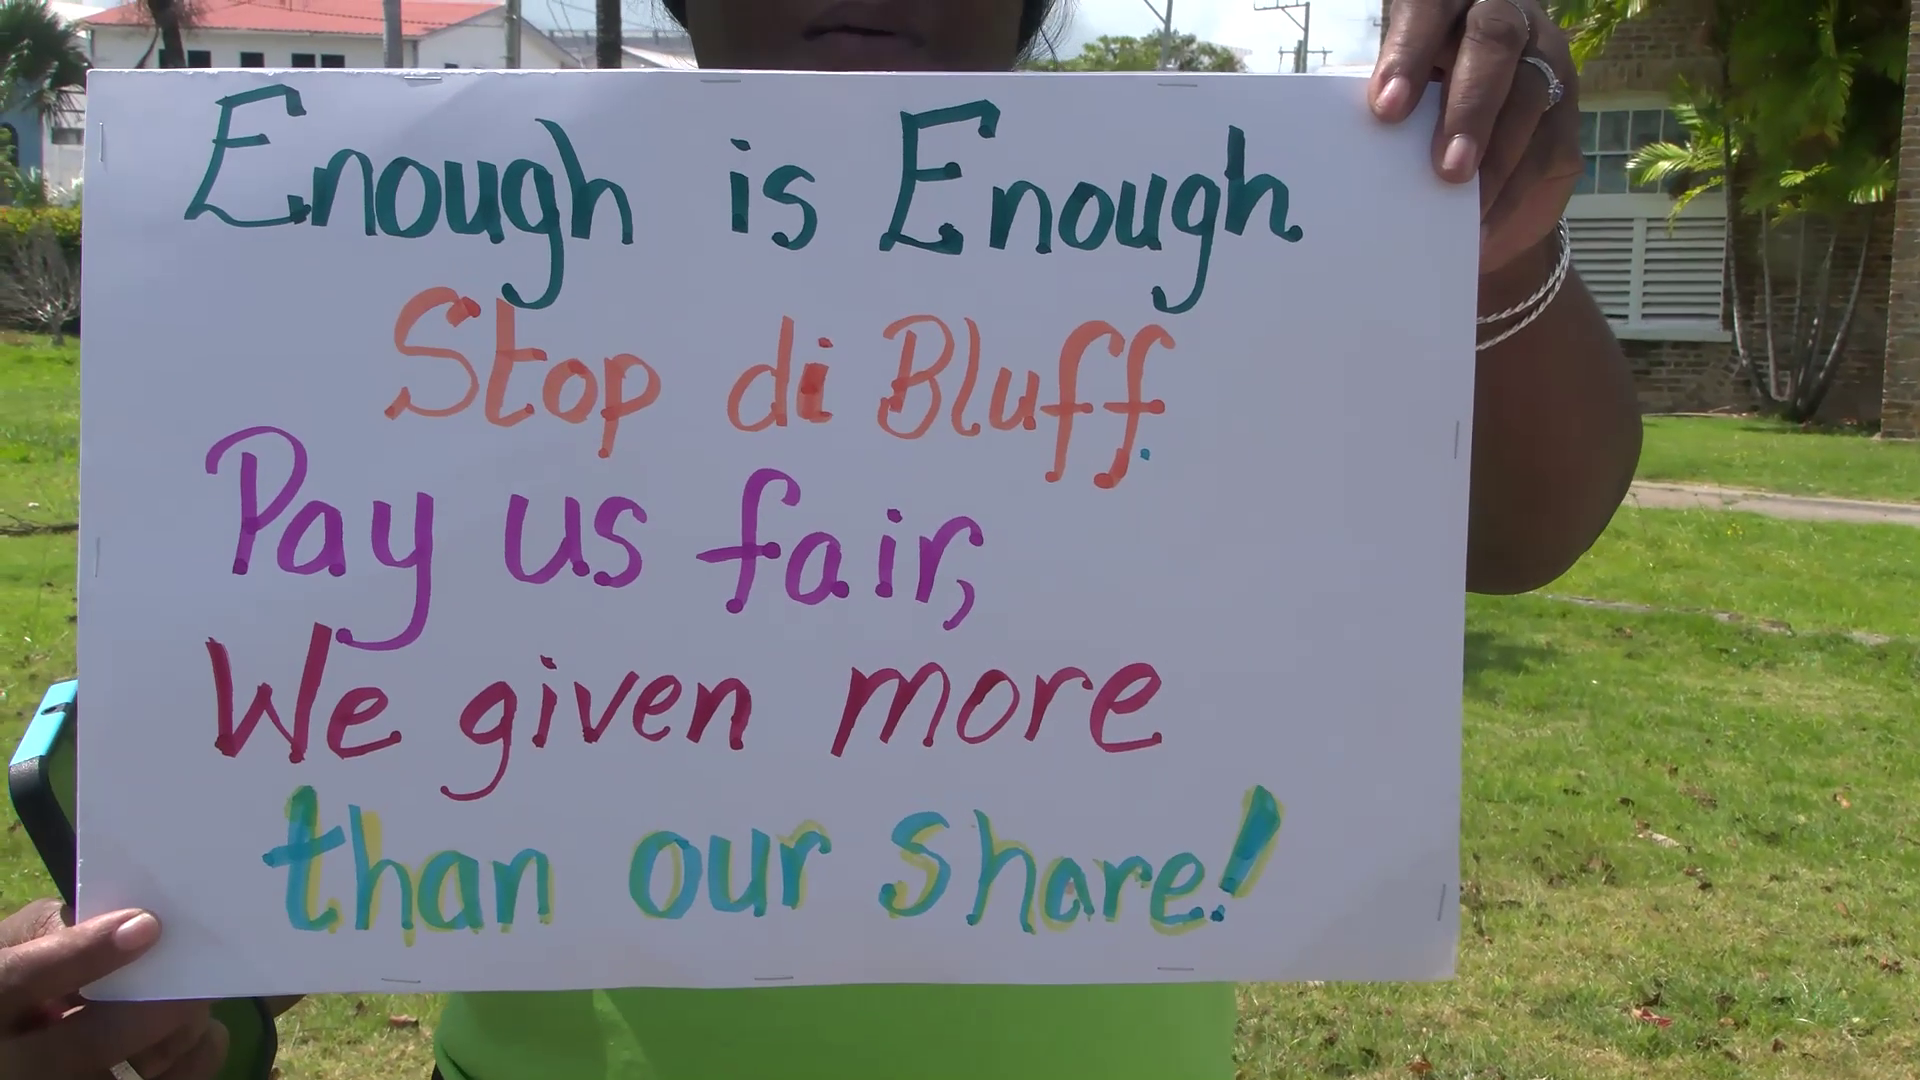 Enough is Enough
Stop di Bluff.
Pay us fair,
We given more
than our share!